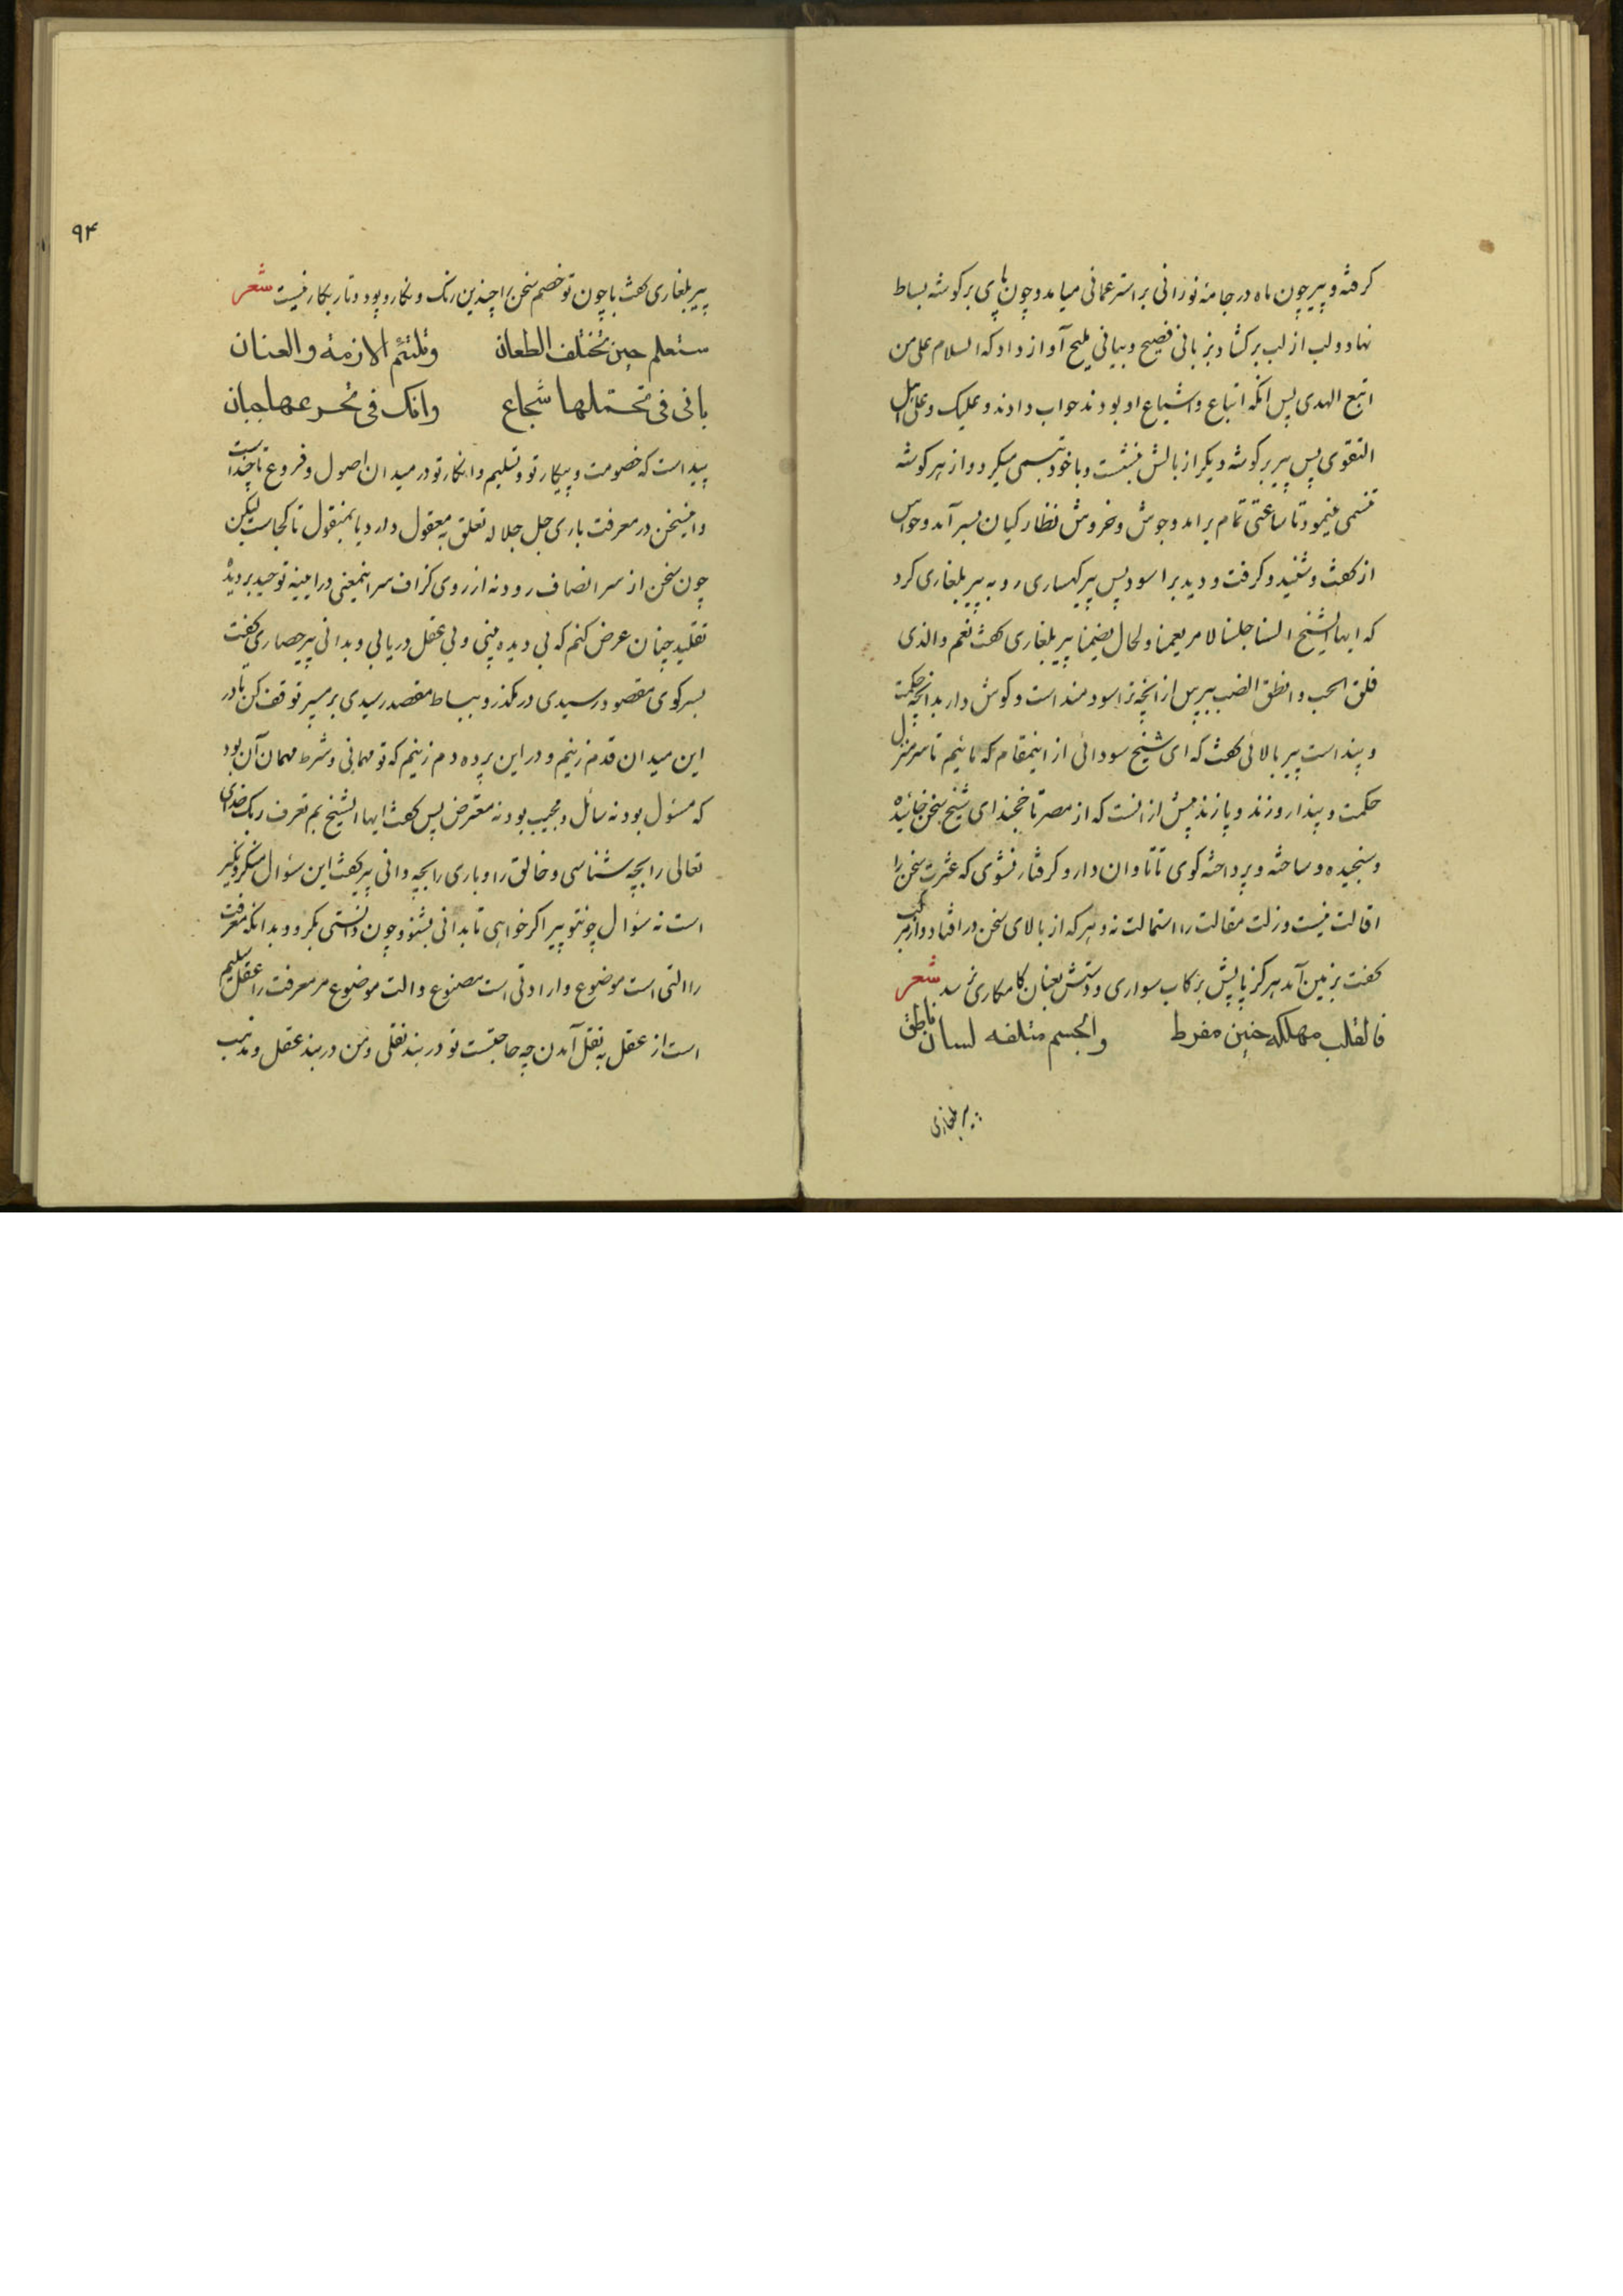 کرفته و پیر چون ماه در جامهٔ نورانی بر استر عمانی میامد و چون پای بر کوشه بساط
نهاد و لب از لب بر کشاد بزبانی فصیح و بیانی ملیح آواز داد که السلام علی من
اتبع الهدی پس انکه اتباع و اشیاع او بودند جواب دادند و علیک و علی اهل
التقوی پس پیر بر کوشه دیکر از بالش بنشست و با خود تبسمی میکرد و از هر کوشه
تنسمی مینمود تا ساعتی تمام برامد و جوش و خروش نظارکیان بسر آمد و حواس
از کفت و شنید و کرفت و دید براسود پس پیر کهساری رو به پیر بلغاری کرد
که ایها الشیخ السنا جلسنا لامر یعمنا و لحال یضمنا پیر بلغاری کفت نعم والذی
فلق الحب و انطق الضب بپرس از انچه ترا سودمند است و کوش دار بدانچه حکمت
و پند است پیر بالائی کفت که ای شیخ سودائی از اینمقام که مائیم تا سر منزل
حکمت و پند ار وزند و پازند بیش از انست که از مصر تا خجند ای شیخ سخن خائیده
و سنجیده و ساخته و پرداخته کوی تا تاوان دار و کرفتار نشوی که عثرت سخن را
اقالت نیست و زلت مقالت را استمالت نه و هر که از بالای سخن در افتاد و از مرکب
کفت بزمین آمد هرکز پایش بر رکاب سواری و دستش بعنان کامکاری نرسد شعر
فالقلب مهلکه حنین مفرط والجسم متلفه لسان ناطق
پیر بلغاری
۹۴
پیر بلغاری کفت با چون تو خصم سخن را چندین رنک و نکار و پود و تار بکار نیست شعر
ستعلم حین تختلف الطعان و تلتئم الازمة والعنان
بانی فی تحتملها شجاع وانک فی تجرعها جبان
پیداست که خصومت و پیکار تو و تسلیم و انکار تو در میدان اصول و فروع تا چند است
و اینسخن در معرفت باری جل جلاله تعلق به معقول دارد یا بمنقول تا کجاست لیکن
چون سخن از سر انصاف رود نه از روی کزاف سر اینمعنی در ایینه توحید بر دیده
تقلید چنان عرض کنم که بی دیده بینی و بی عقل دریابی و بدانی پیر حصاری کفت
بسر کوی مقصود رسیدی در مکذر و ببساط مقصد رسیدی بر مپر توقف کن تا در
این میدان قدم زنیم و در این پرده دم زنیم که تو مهمانی و شرط مهمان آن بود
که مسئول بود نه سائل و مجیب بود نه معترض پس کفت ایها الشیخ بم تعرف ربک خدای
تعالی را بچه شناسی و خالق را و باری را بچه دانی پیر کفت این سؤال منکر و نکیر
است نه سؤال چون تو پیر اکر خواهی تا بدانی بشنو و چون دانستی بکرو و بدانکه معرفت
را التی است موضوع و اراداتی است مصنوع و الت موضوع مر معرفت را عقل سلیم
است از عقل به نقل آمدن چه حاجتست تو در بند نقلی و من در بند عقل و مذهب